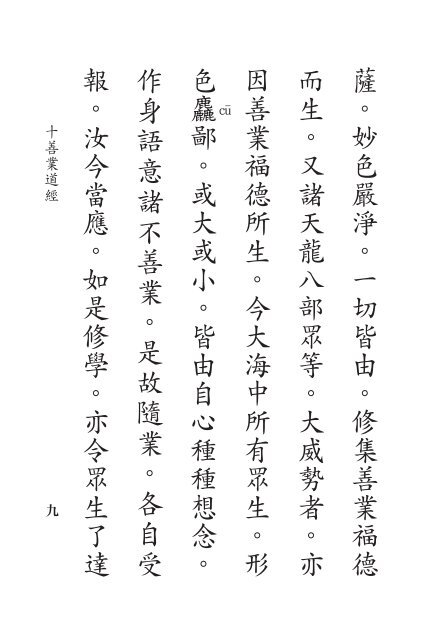 薩。妙色嚴淨。一切皆由。修集善業福德
而生。又諸天龍八部眾等。大威勢者。亦
因善業福德所生。今大海中所有眾生。形
色麤鄙。或大或小。皆由自心種種想念。
cū
作身語意諸不善業。是故隨業。各自受
報。汝今當應。如是修學。亦令眾生了達
十善業道經
九